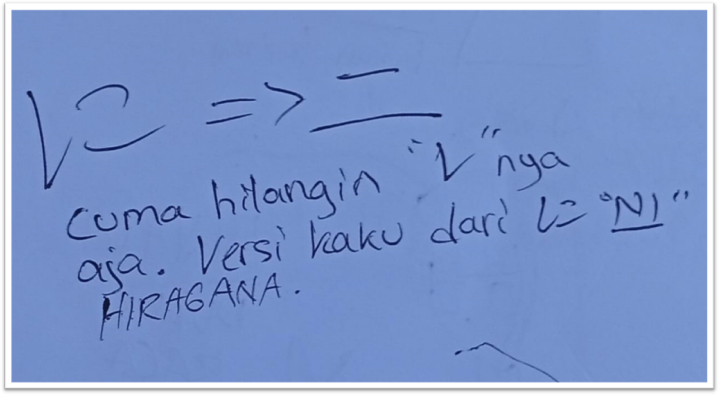 に => ニ
Cuma hilangin "L" nya
aja. Versi kaku dari に "NI"
HIRAGANA.